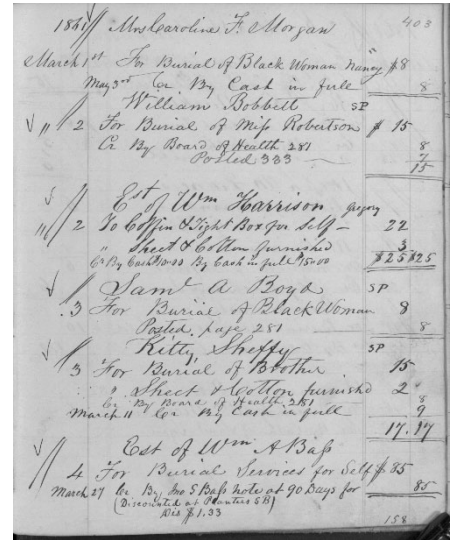 403
1861 Mrs Caroline F. Morgan
March 1st For Burial of Black Woman "Nancy" $8
May 3rd Cr By Cash in full 8
William Bobbett SP
" 2 For Burial of Miss Robertson $ 15
Cr By Board of Health 281 8
Posted 333 7
15
Est of Wm Harrison Gregory
" 2 To Coffin & Tight Box for Self - 22
" Sheet & Cotton furnished 3
Cr By Cash $10.00 By Cash in full $15.00 $25 $25
Saml A Boyd SP
3 For Burial of Black Woman 8
Posted page 281 8
Kitty Sheffy SP
3 For Burial of Brother 15
" Sheet & Cotton furnishd 2
Cr By Board of Health 281 8
March 11 Cr By Cash in full 9
17.17
Est of Wm A Bass
4 For Burial Services for Self $ 85
March 27 Cr By Jno S Bass note at 90 Days for 85
(Discounted at Planters SB)
Dis $1.33
158